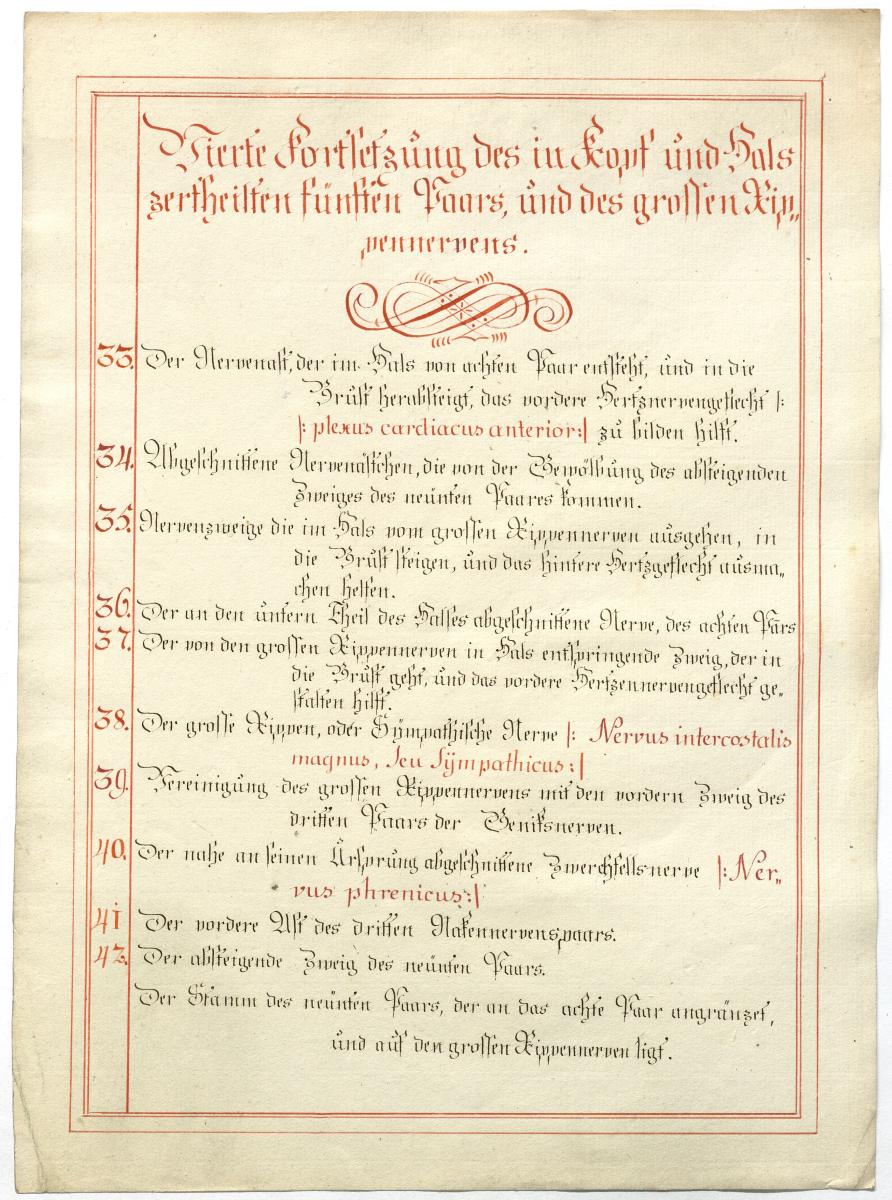 Vierte Fortsetzung des in Kopf und Hals
zertheilten fünften Paars, und des grossen Rip„
pennervens.
33. Der Nervenast, der im Hals von achten Paar entsteht, und in die
Brust herabsteigt, das vordere Hertznervengeflecht |:
|: plexus cardiacus anterior:| zu bilden hilft.
34. Abgeschnittene Nervenästchen, die von der Gewölbung des absteigenden
Zweiges des neünten Paares kommen.
35. Nervenzweige die im Hals vom grossen Rippennerven ausgehen, in
die Brust steigen, und das hintere Hertzgeflecht ausma„
chen helfen.
36. Der an den untern Theil des Halses abgeschnittene Nerve, des achten Pars
37. Der von den grossen Rippennerven in Hals entspringende Zweig, der in
die Brust geht, und das vordere Hertzennervengeflecht ge„
stalten hilft.
38. Der grosse Rippen, oder Sÿmpathische Nerve |: Nervus intercostalis
magnus, seu sÿmpathicus:|
39. Vereinigung des grossen Rippennervens mit den vordern Zweig des
dritten Paars der Geniksnerven.
40. Der nahe an seinen Ursprung abgeschnittene Zwerchfellsnerve |: Ner„
vus phrenicus:|
41 Der vordere Ast des dritten Nakennervenspaars.
42. Der absteigende Zweig des neünten Paars.
Der Stamm des neünten Paars, der an das achte Paar angränzet,
und auf den grossen Rippennerven ligt.